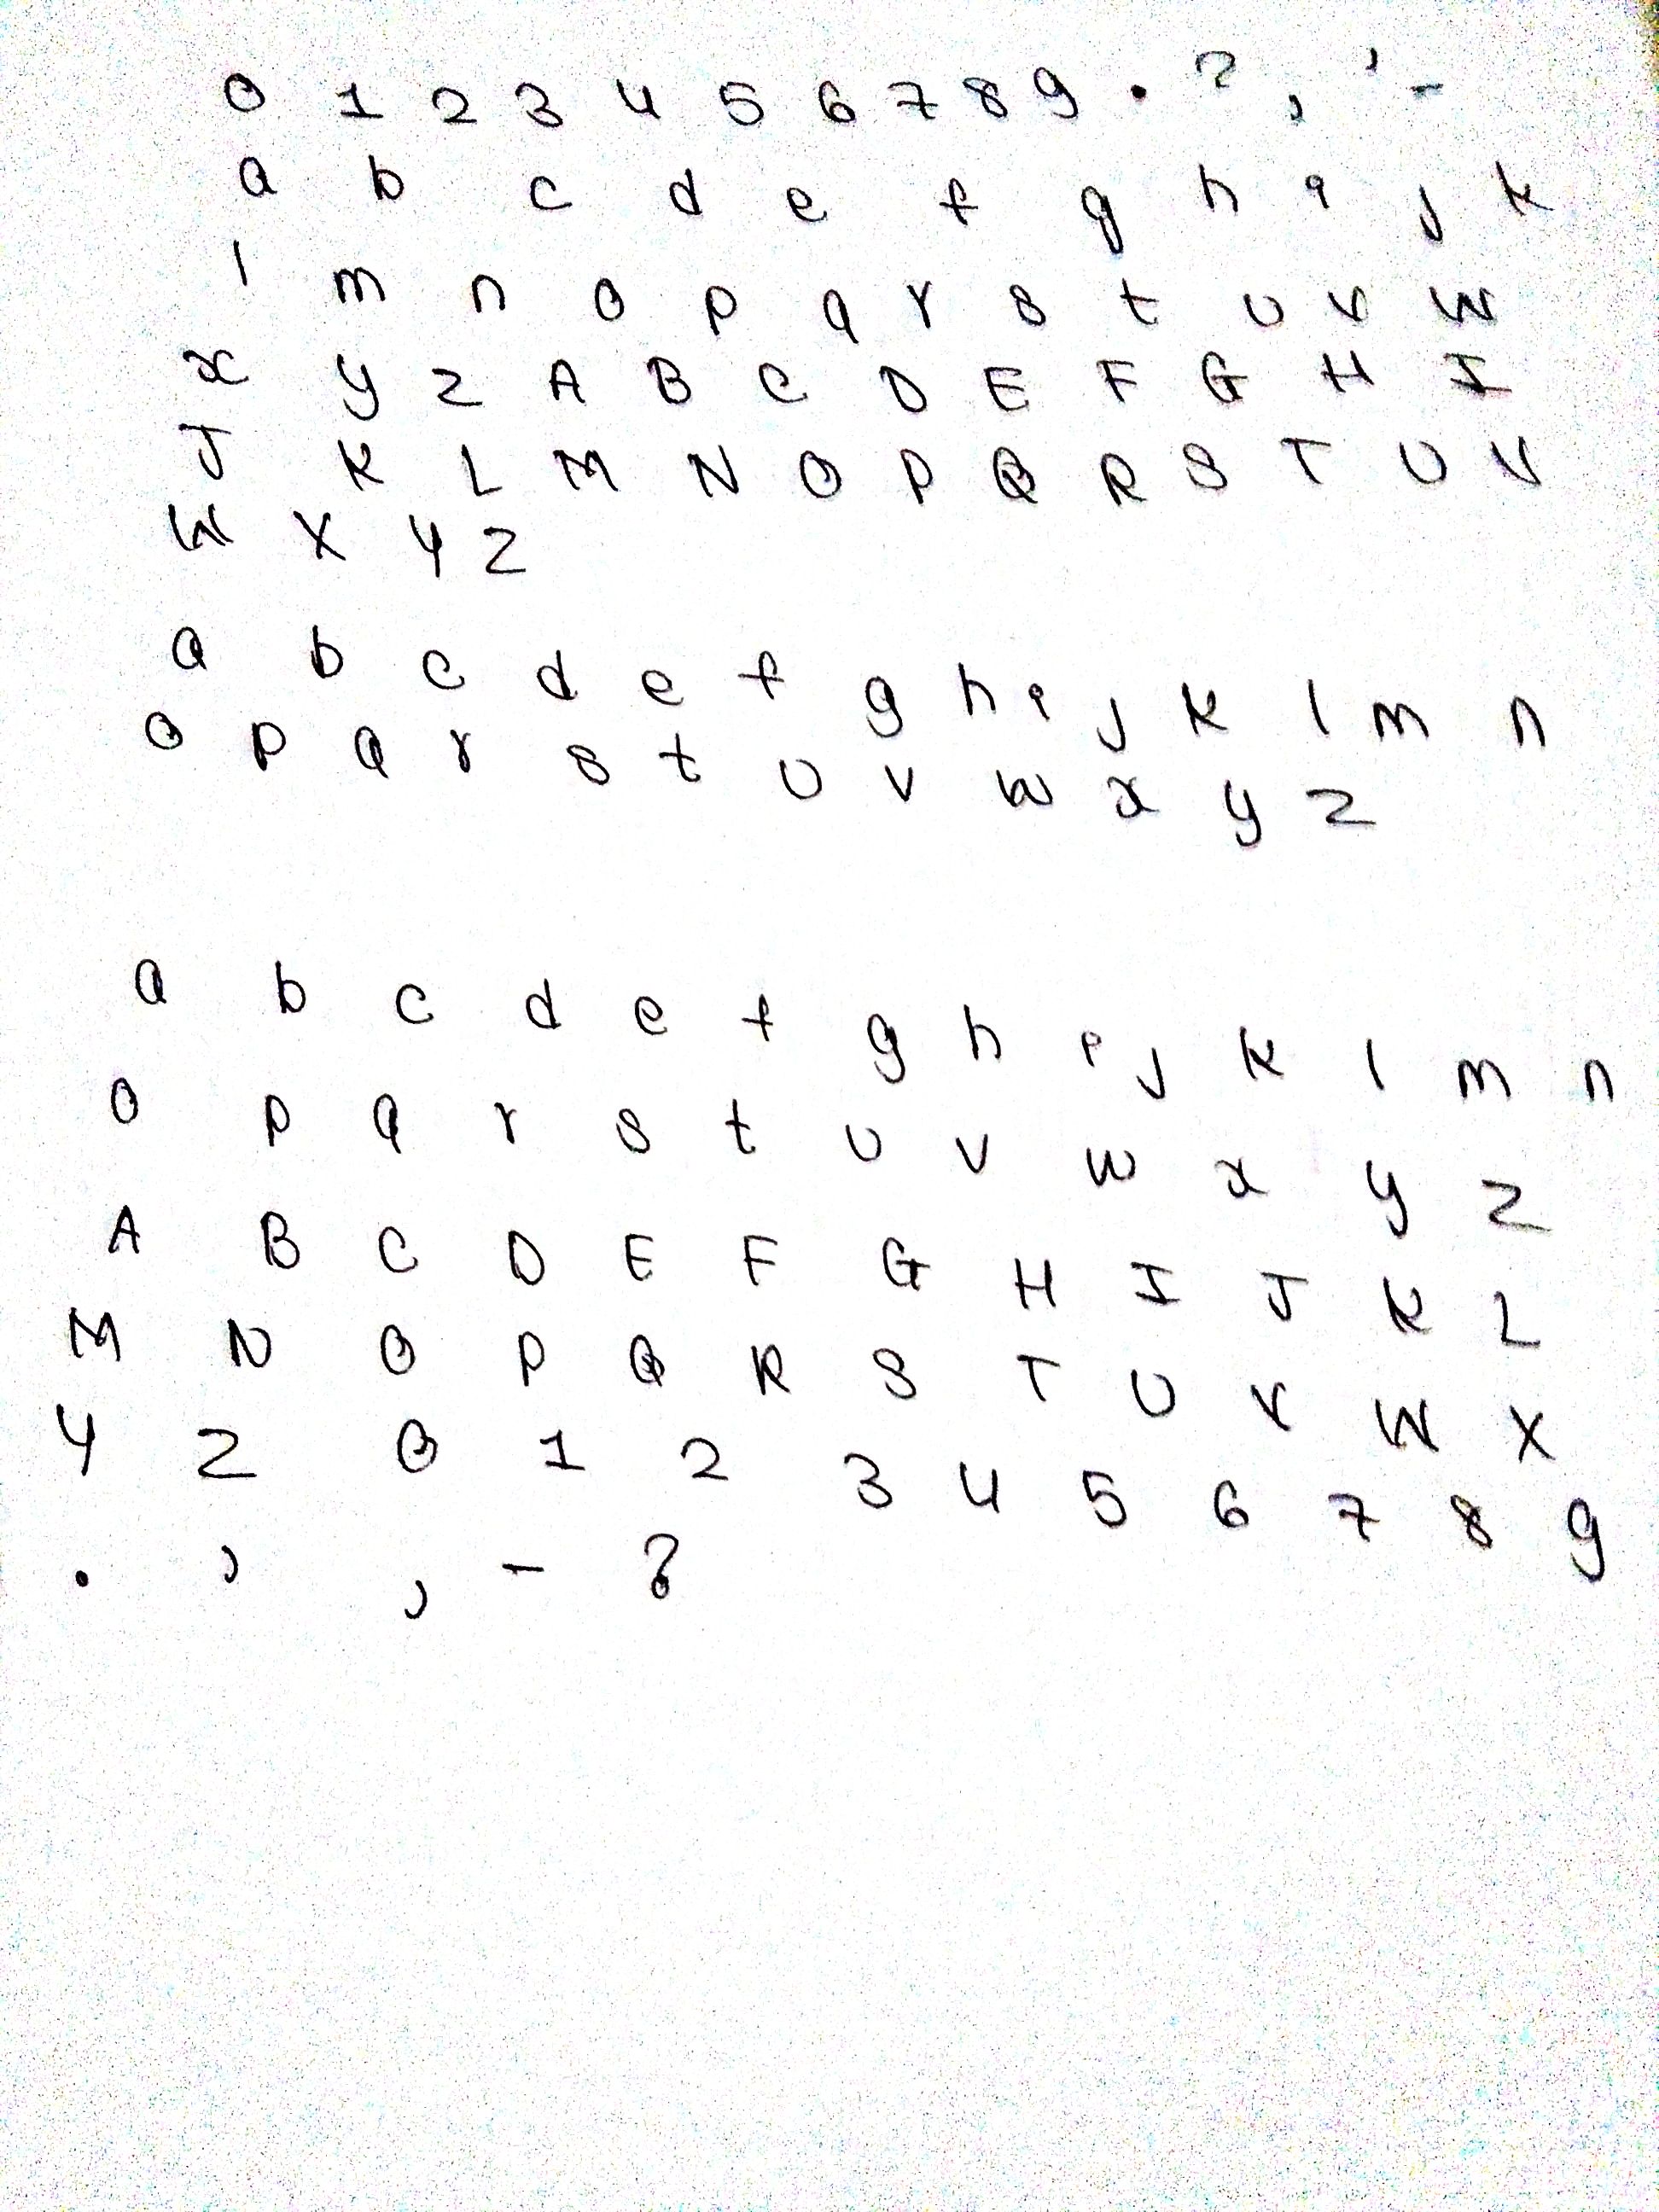 0 1 2 3 4 5 6 7 8 9 . ? , ' -
a b c d e f g h i j k
l m n o p q r s t u v w
x y z A B C D E F G H I
J K L M N O P Q R S T U V
W X Y Z
a b c d e f g h i j k l m n
o p q r s t u v w x y z
a b c d e f g h i j k l m n
o p q r s t u v w x y z
A B C D E F G H I J K L
M N O P Q R S T U V W X
Y Z 0 1 2 3 4 5 6 7 8 9
. ' , - ?